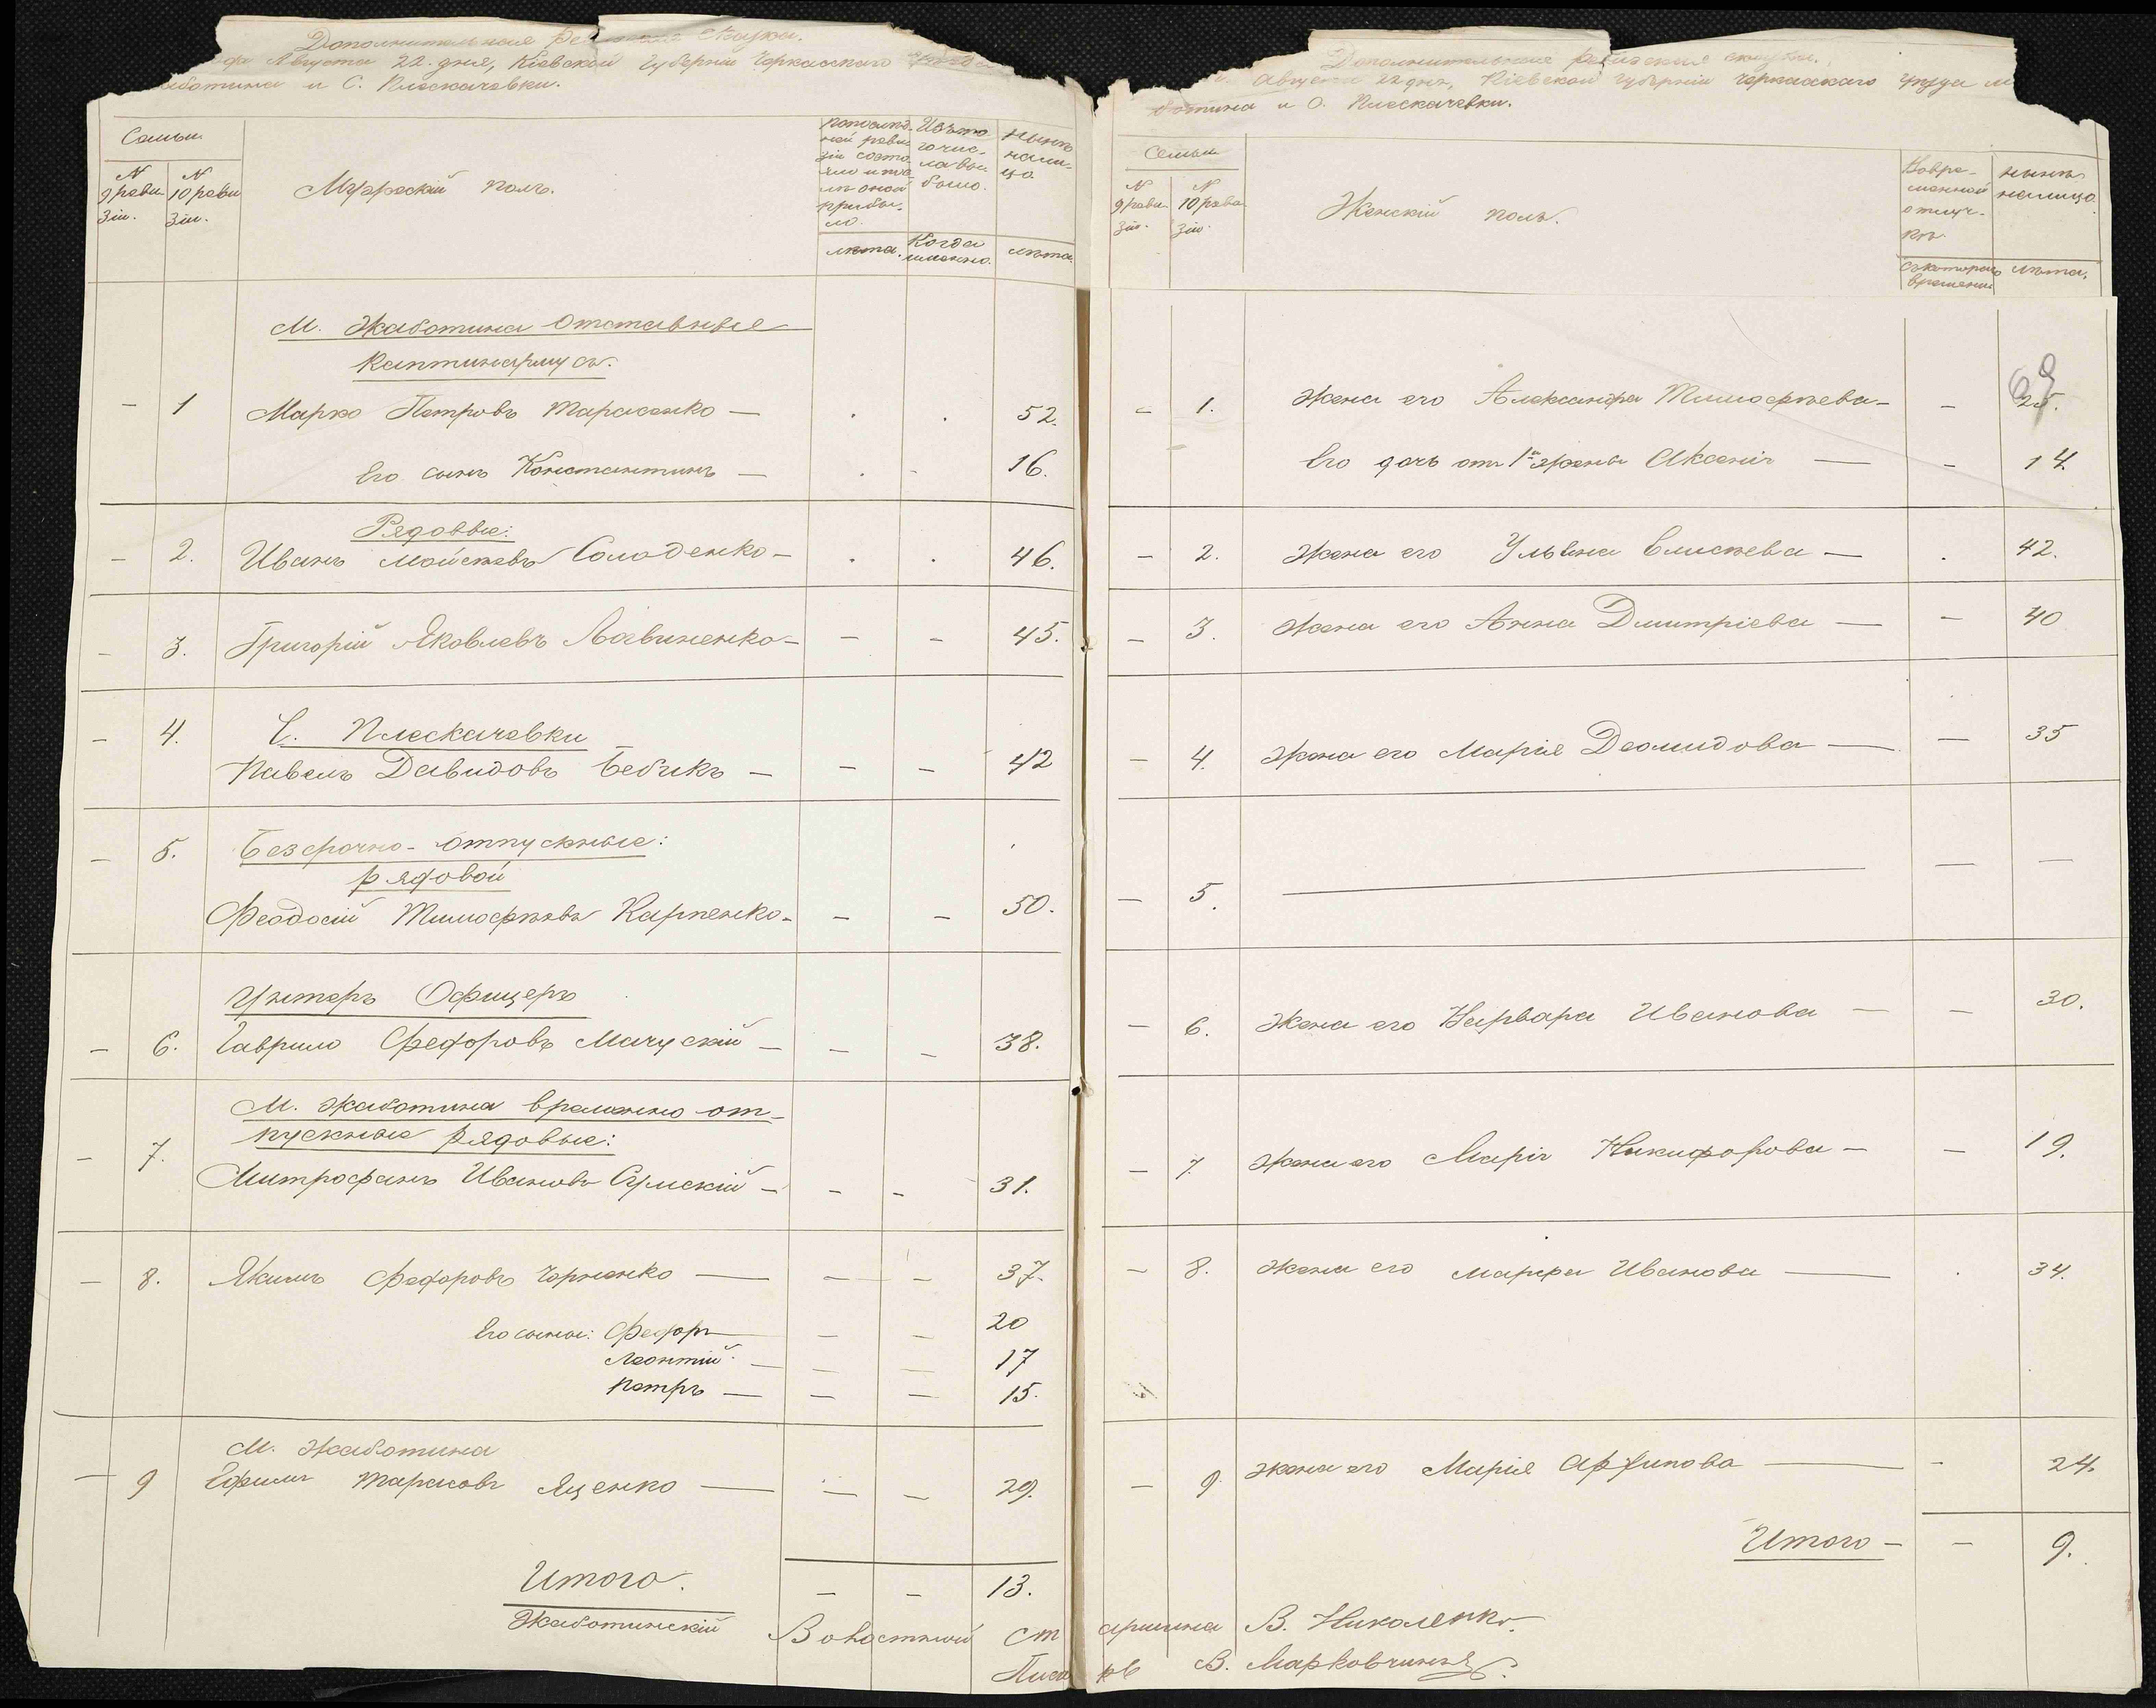 Дополнительная Ревизская Сказка.
Августа 22. дня, Кіевской Губерніи Черкасскаго
аботина и С. Плескачевки.
Семьи
N 9 реви- зіи.
N 10 реви- зіи.
Мужескій полъ.
По послѣд- ней реви- зіи состо- яло и пос- лѣ оной прибы- ло.
Изъ то- го чис- ла вы- было.
Нынѣ на ли- цо
лѣта.
Когда именно.
лѣта.
М. Жаботина Отставные
Каптинармусъ.
— 1 Марко Петровъ Тарасенко — . . 52.
Его сынъ Константинъ — . - 16.
Рядовые:
— 2. Иванъ Мойсѣевъ Солоденко — . . 46.
— 3. Григорій Яковлевъ Лавиненко — — — 45.
— 4. С. Плескачевки
Павелъ Давидовъ Бебикъ — — — 42
— 5. Безсрочно-отпускные:
рядовой
Феодосій Тимофѣевъ Карпенко — — — 50.
Унтеръ Офицеръ
— 6. Гаврило Федоровъ Мачускій — — — 38.
М. Жаботина временно от-
пускные рядовые:
— 7. Митрофанъ Ивановъ Сумскій — — — 31.
— 8. Якимъ Федоровъ Чорненко — — — 37.
Его сыны: Федоръ — — — 20
Леонтій — — — 17
Петръ — — — 15.
М. Жаботина
— 9 Ефимъ Тарасовъ Яценко — — — 29.
Итого. — — 13.
Дополнительная ревизская сказка.
Августа 22 дня, Кіевской губерніи Черкасскаго уѣзда м
ботина и С. Плескачевки.
Семьи
N 9 реви- зіи.
N 10 реви- зіи.
Женскій полъ.
Во вре- менной отлуч- кѣ.
Нынѣ на лицо.
съ котораго времени
лѣта.
— 1. Жена его Александра Тимофѣева — — 25.
Его дочь отъ 1й жены Аксенія — — 14.
— 2. Жена его Ульяна Елисѣева — . 42.
— 3. Жена его Анна Дмитріева — — 40
— 4. Жена его Марія Деомидова — — 35
— 5. — — —
— 6. Жена его Варвара Иванова — — 30.
— 7. Жена его Марія Никифорова — — 19.
— 8. Жена его Марфа Иванова — . 34.
— 9. Жена его Марія — - 24.
Итого — — 9.
Жаботинскій Волостный Старшина В. Николенко.
Писарь В.